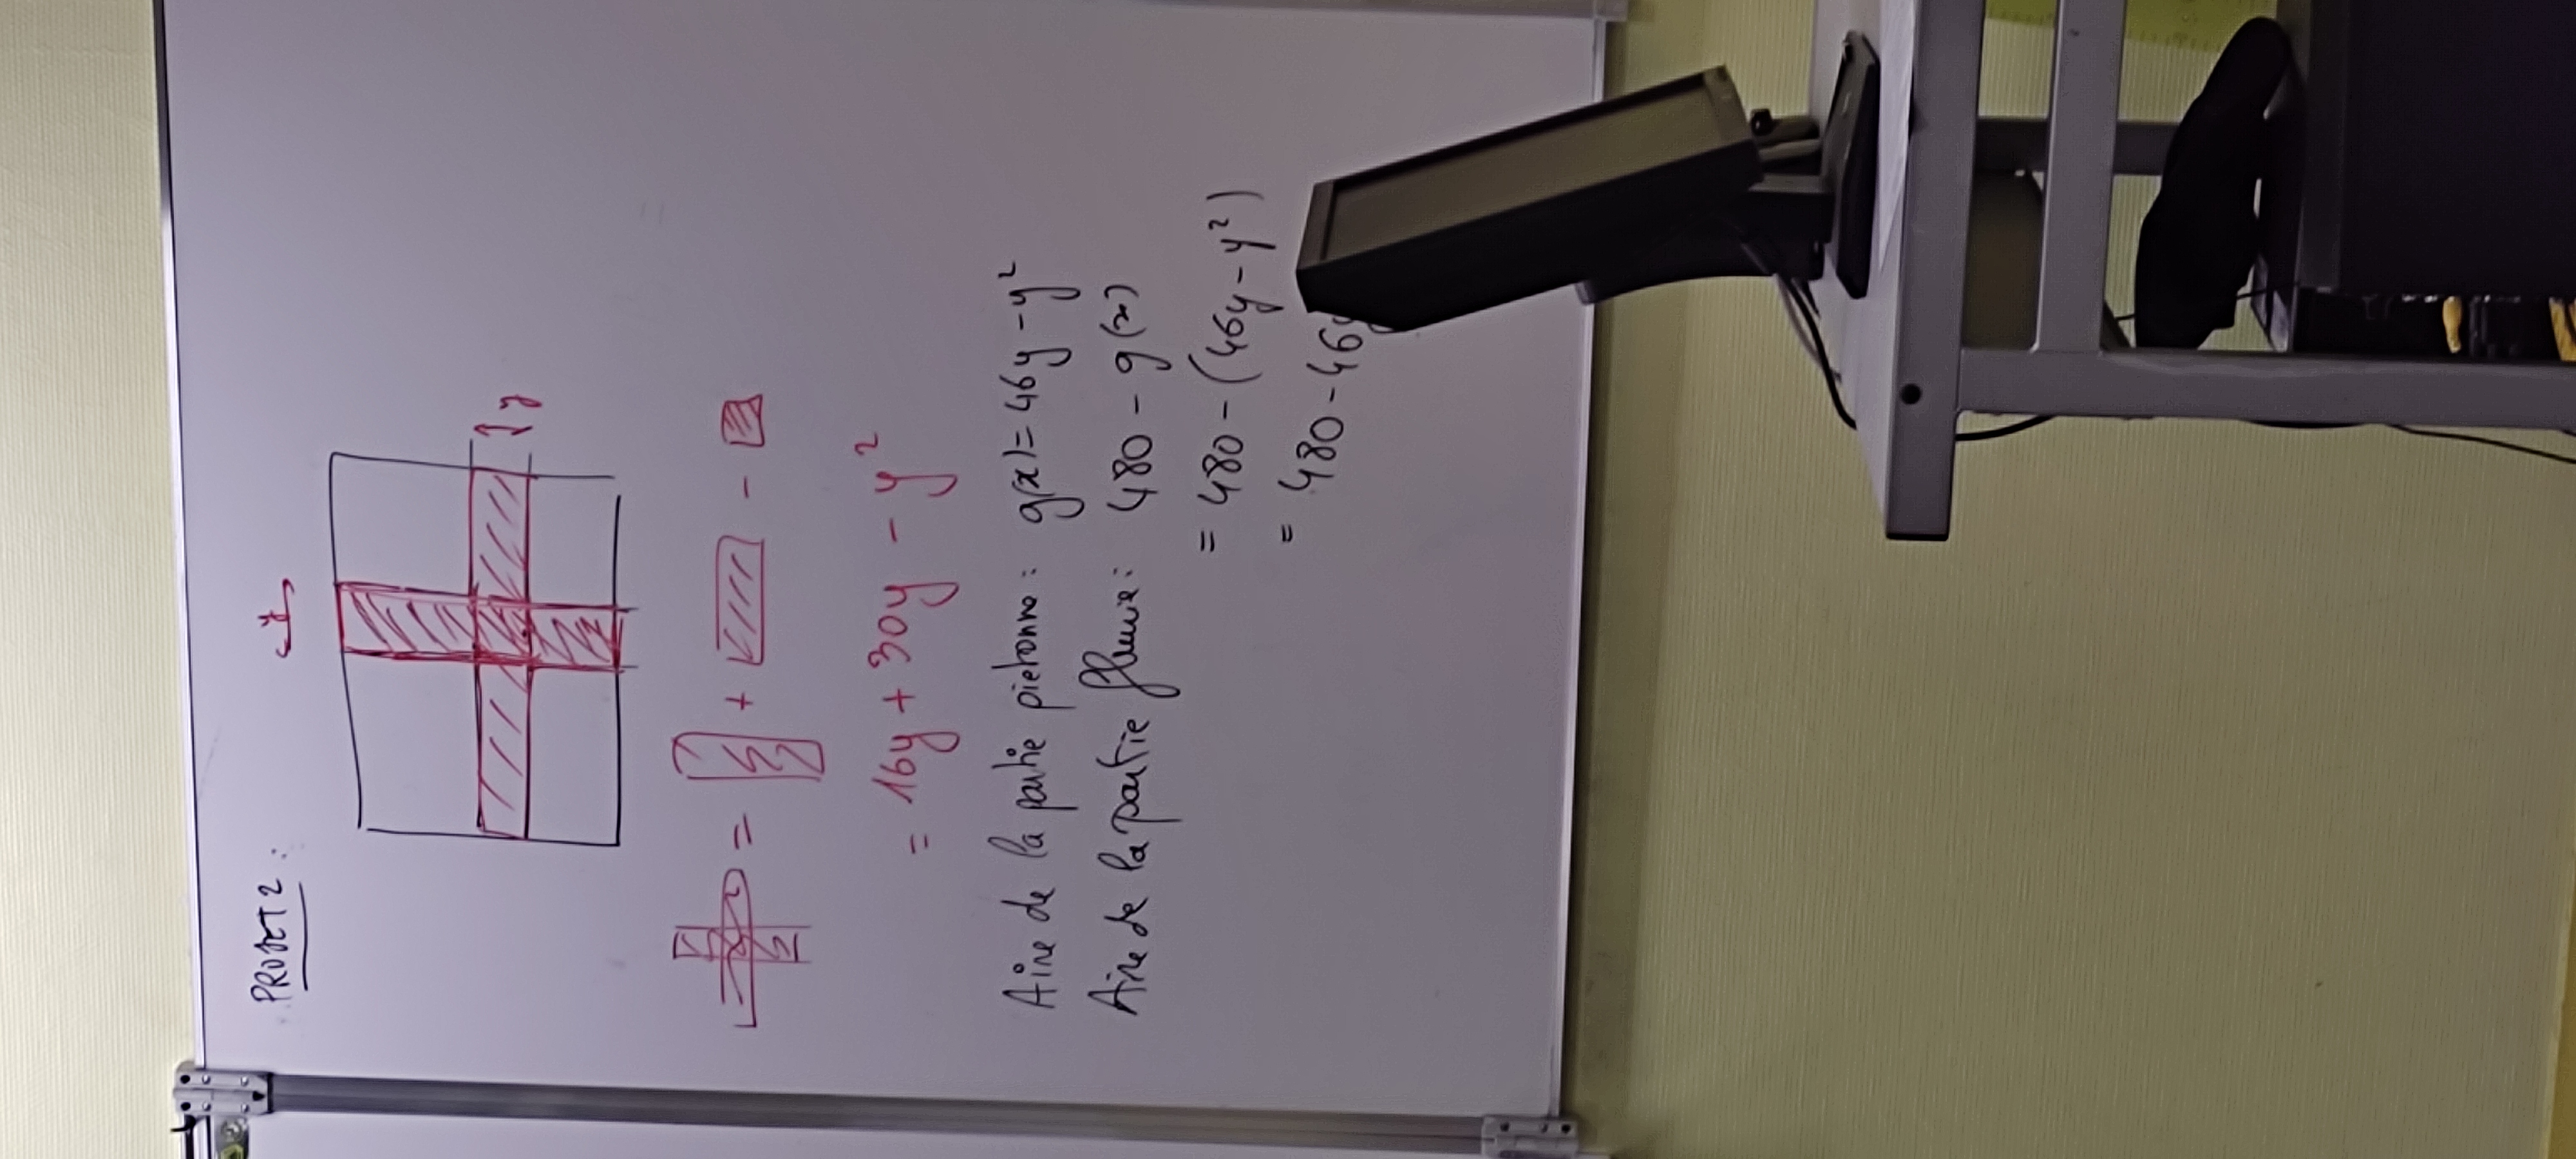 PROJET 2 :
y
y
= + -
= 16y + 30y - y²
Aire de la partie pietonne : g(x) = 46y - y²
Aire de la partie fleurie : 480 - g(x)
= 480 - (46y - y²)
= 480 - 46y